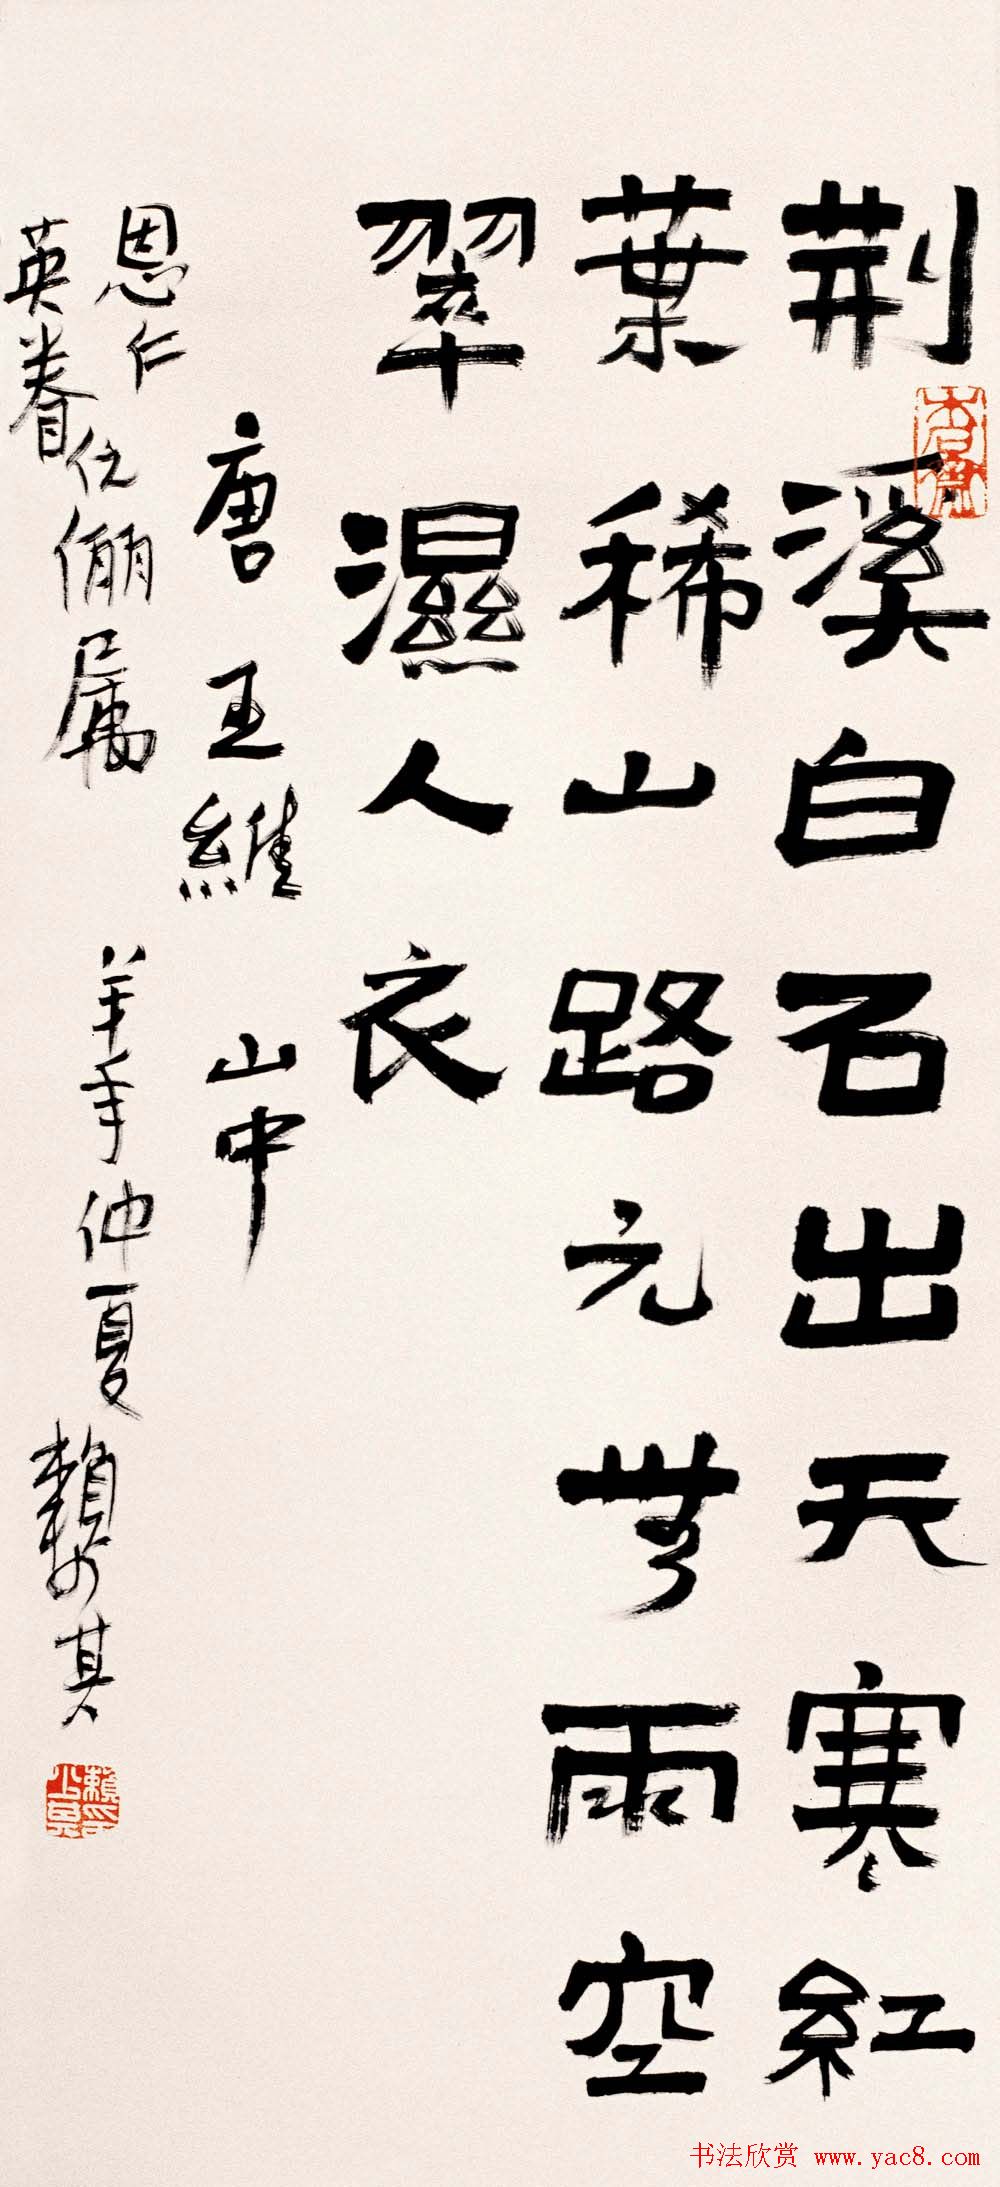 荆溪白石出天寒紅
葉稀山路元無雨空
翠濕人衣
唐王維 山中
恩仁
英眷伉儷属 羊年仲夏 賴少其
木石齋
賴少其印
书法欣赏 www.yac8.com